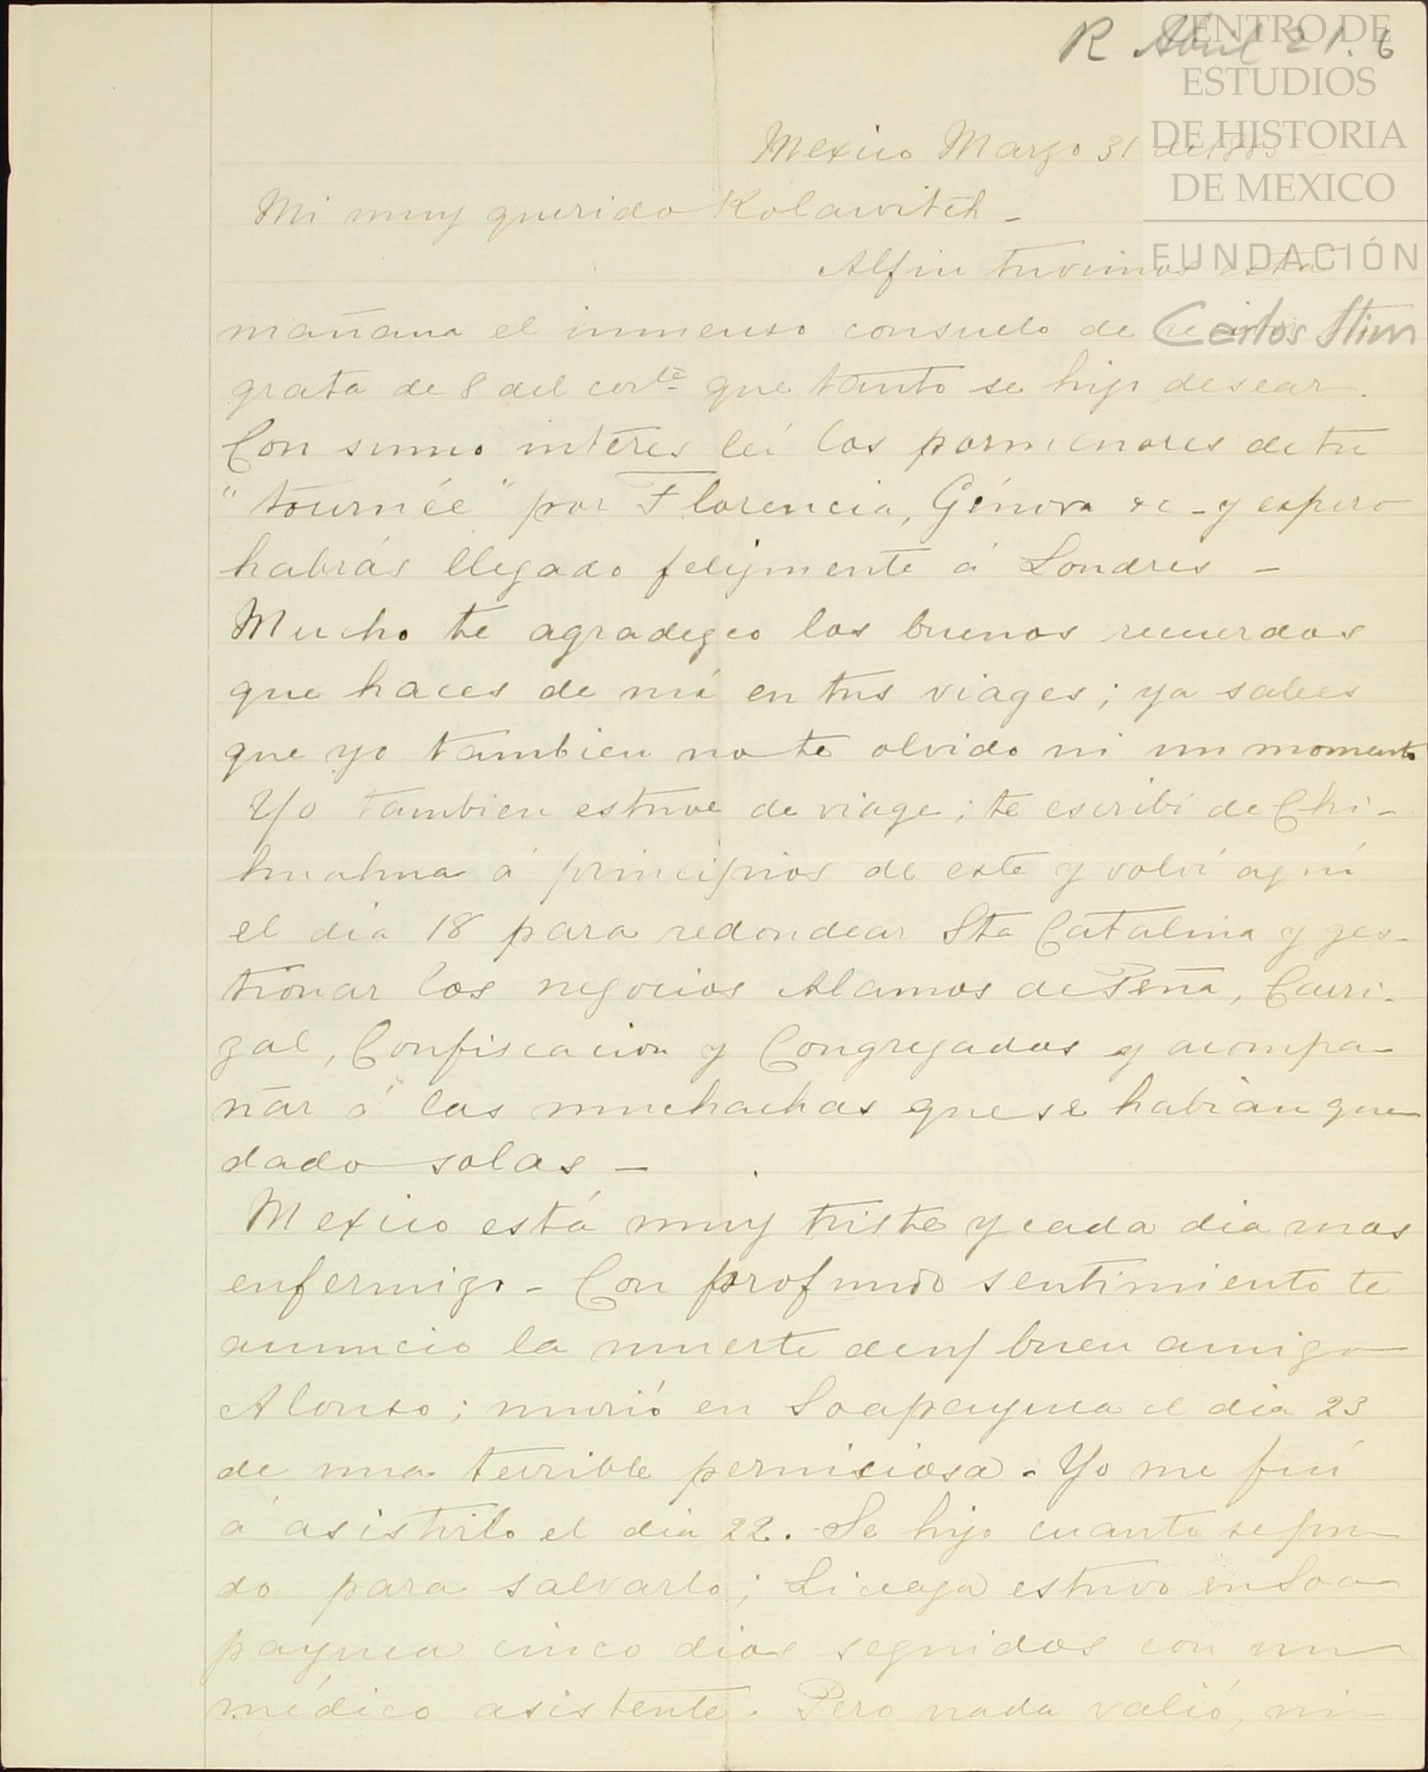 R Abril 21. 6
CENTRO DE
ESTUDIOS
DE HISTORIA
DE MEXICO
FUNDACIÓN
Carlos Slim
Mexico Marzo 31 de 1885
Mi muy querido Kolawitch -
Alfin tuvimos esta
mañana el inmenso consuelo de
grata de 8 del corte que tanto se hizo desear.
Con sumo intéres leí los pormenores de tu
"tournée" por Florencia, Génova &c - y espero
habrás llegado felizmente á Londres -
Mucho te agradezco los buenos recuerdos
que haces de mí en tus viages; ya sabes
que yo tambien no te olvido ni un momento
Yo tambien estuve de viage; te escribi de Chi-
huahua á principios de este y volví aquí
el día 18 para redondear Sta Catalina y ges-
tionar los negocios Alamos de Peña, Carri-
zal, Confiscacion y Congregados y acompa-
ñar á las muchachas que se habían que
dado solas -
Mexico está muy triste y cada dia mas
enfermizo - Con profundo sentimiento te
anuncio la muerte de buen amigo
Alonso; murió en Soapayuca el dia 23
de una terrible perniciosa. Yo me fuí
á asistirlo el dia 22. Se hizo cuanto se pu-
do para salvarlo; Liceaga estuvo en Soa-
payuca cinco dias seguidos con un
médico asistente. Pero nada valió, ni-